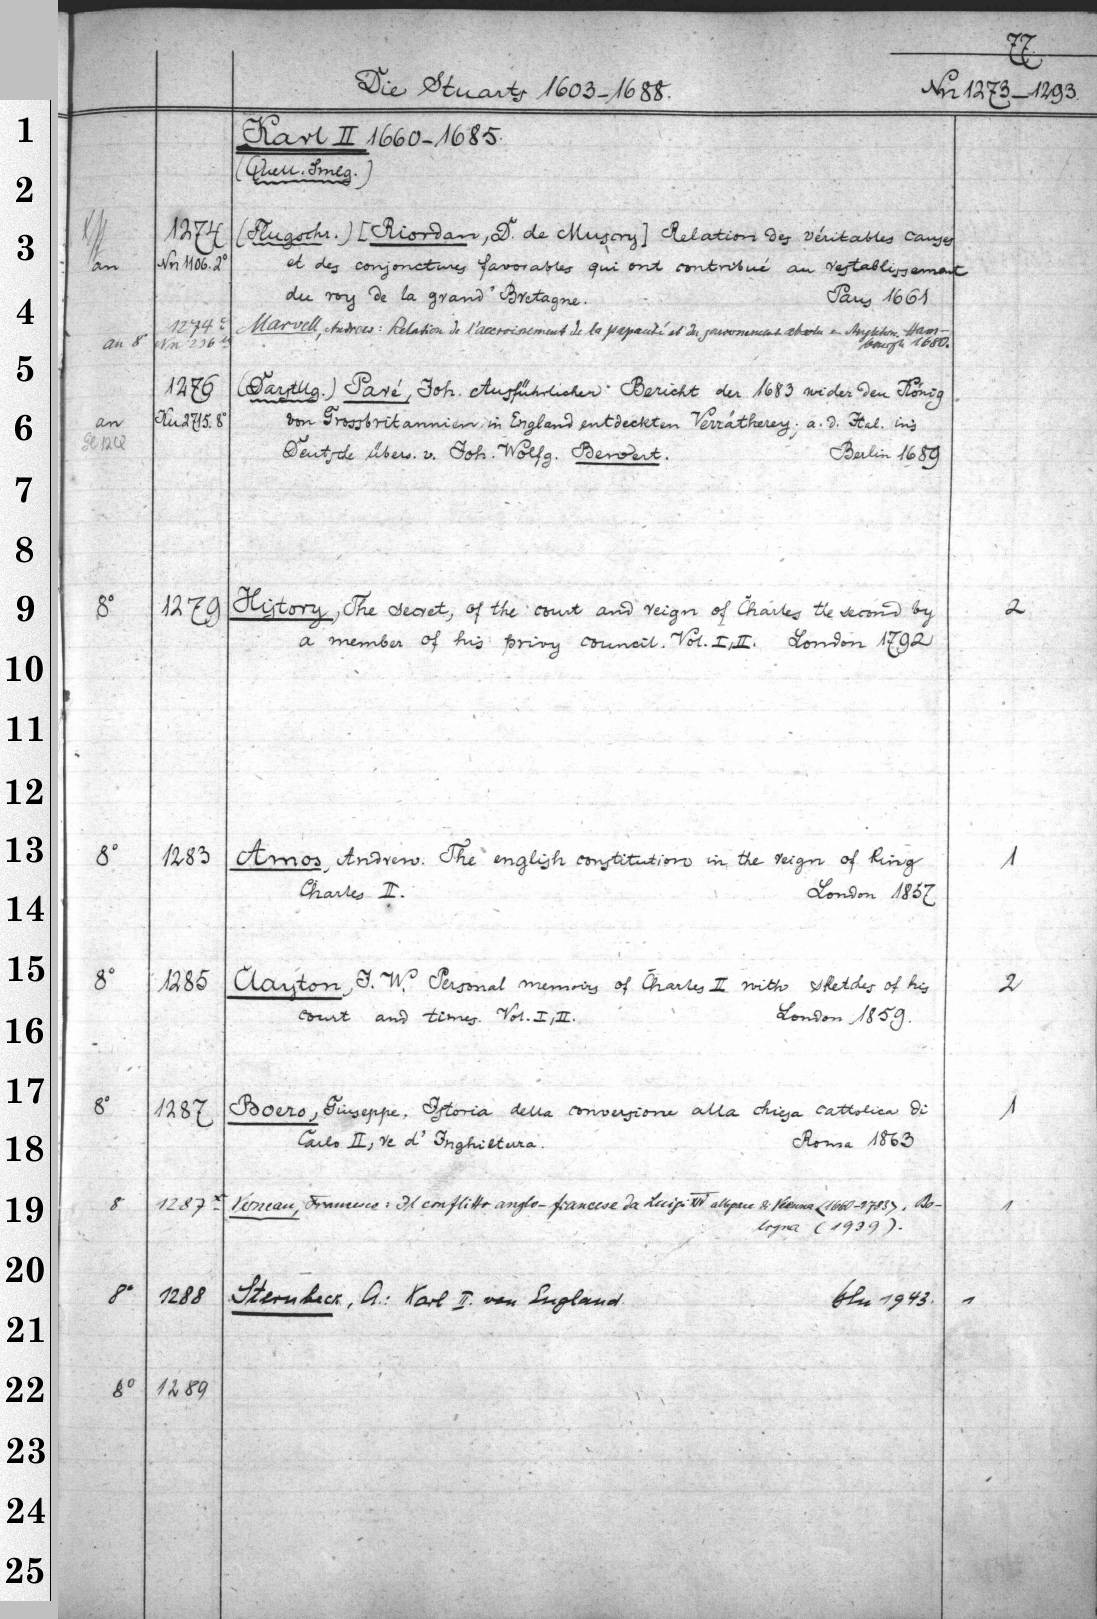 77.
Die Stuarts 1603-1688. Nn 1273-1293.
1 Karl II 1660-1685.
2 (Quell. Smlg.)
3 1274 (Flugschr.) [Riordan, D. de Muscry] Relation des véritables causes
an Nn 1106.2° et des conjonctures favorables qui ont contribué au restablissement
4 du roy de la grand' Bretagne. Paris 1661
1274 Marvell, Andreas: Relation de l'accroissement de la papauté et du gouvernement absolu en Angleterre. Ham-
an 8° bourgh 1680.
5 1276 (Darstllg.) Pavé, Joh. Ausführlicher Bericht der 1683 wider den König
6 an Ku 2715.8° von Grossbritannien in England entdeckten Verrätherey; a. d. Ital. ins
Deutsche übers. v. Joh. Wolfg. Berdert. Berlin 1689
7
8
9 8° 1279 History, The secret, of the court and reign of Charles the second by 2
10 a member of his privy council. Vol. I, II. London 1792
11
12
13 8° 1283 Amos, Andrew. The english constitution in the reign of King 1
14 Charles II. London 1857
15 8° 1285 Clayton, J. W. Personal memoirs of Charles II with sketches of his 2
16 court and times. Vol. I, II. London 1859.
17 8° 1287 Boero, Giuseppe. Istoria della conversione alla chiesa cattolica di 1
18 Carlo II, re d' Inghilterra. Roma 1863
19 8 1287 Francesco: Il conflitto anglo-francese da Luigi XIV Vienna (1660-1783). Bo- 1
logna (1939).
20 8° 1288 Sternbeck, A.: Karl II. von England. Bln 1943. 1
21
22 8° 1289
23
24
25